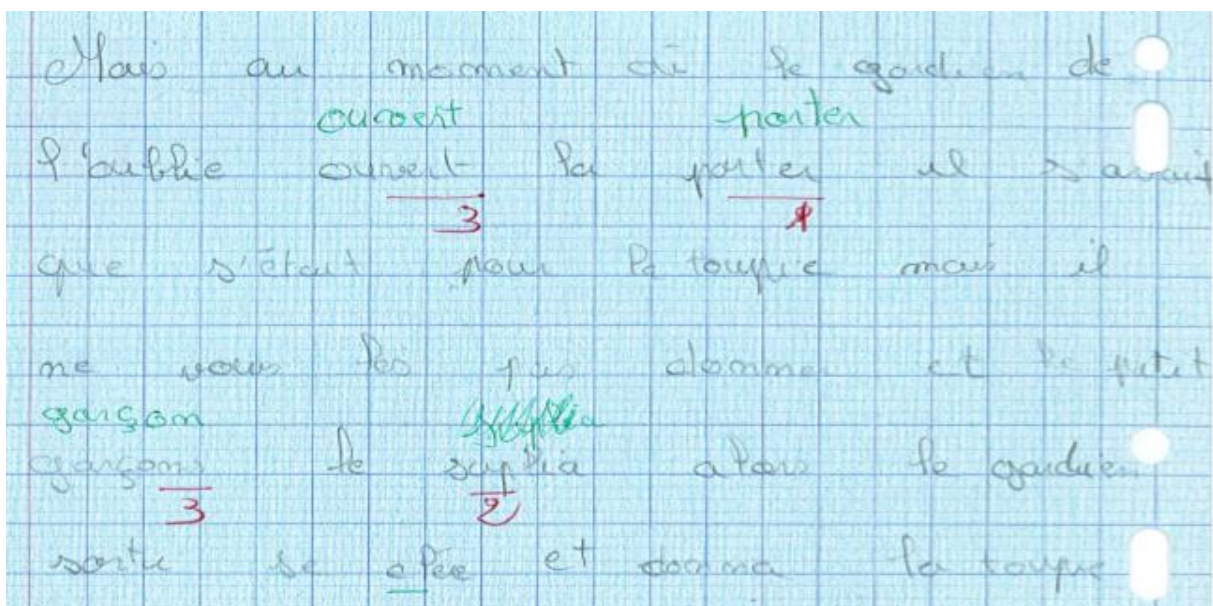 Mais au moment où le gardien de
ouvert porter
l'oublie ouvert la porter il s'avait
3 1
que s'était pour la toupie mais il
ne vous les pas donner et le petit
garçon
garçons le suplia alors le gardien
3 2
sortie se clée et donna la toupie